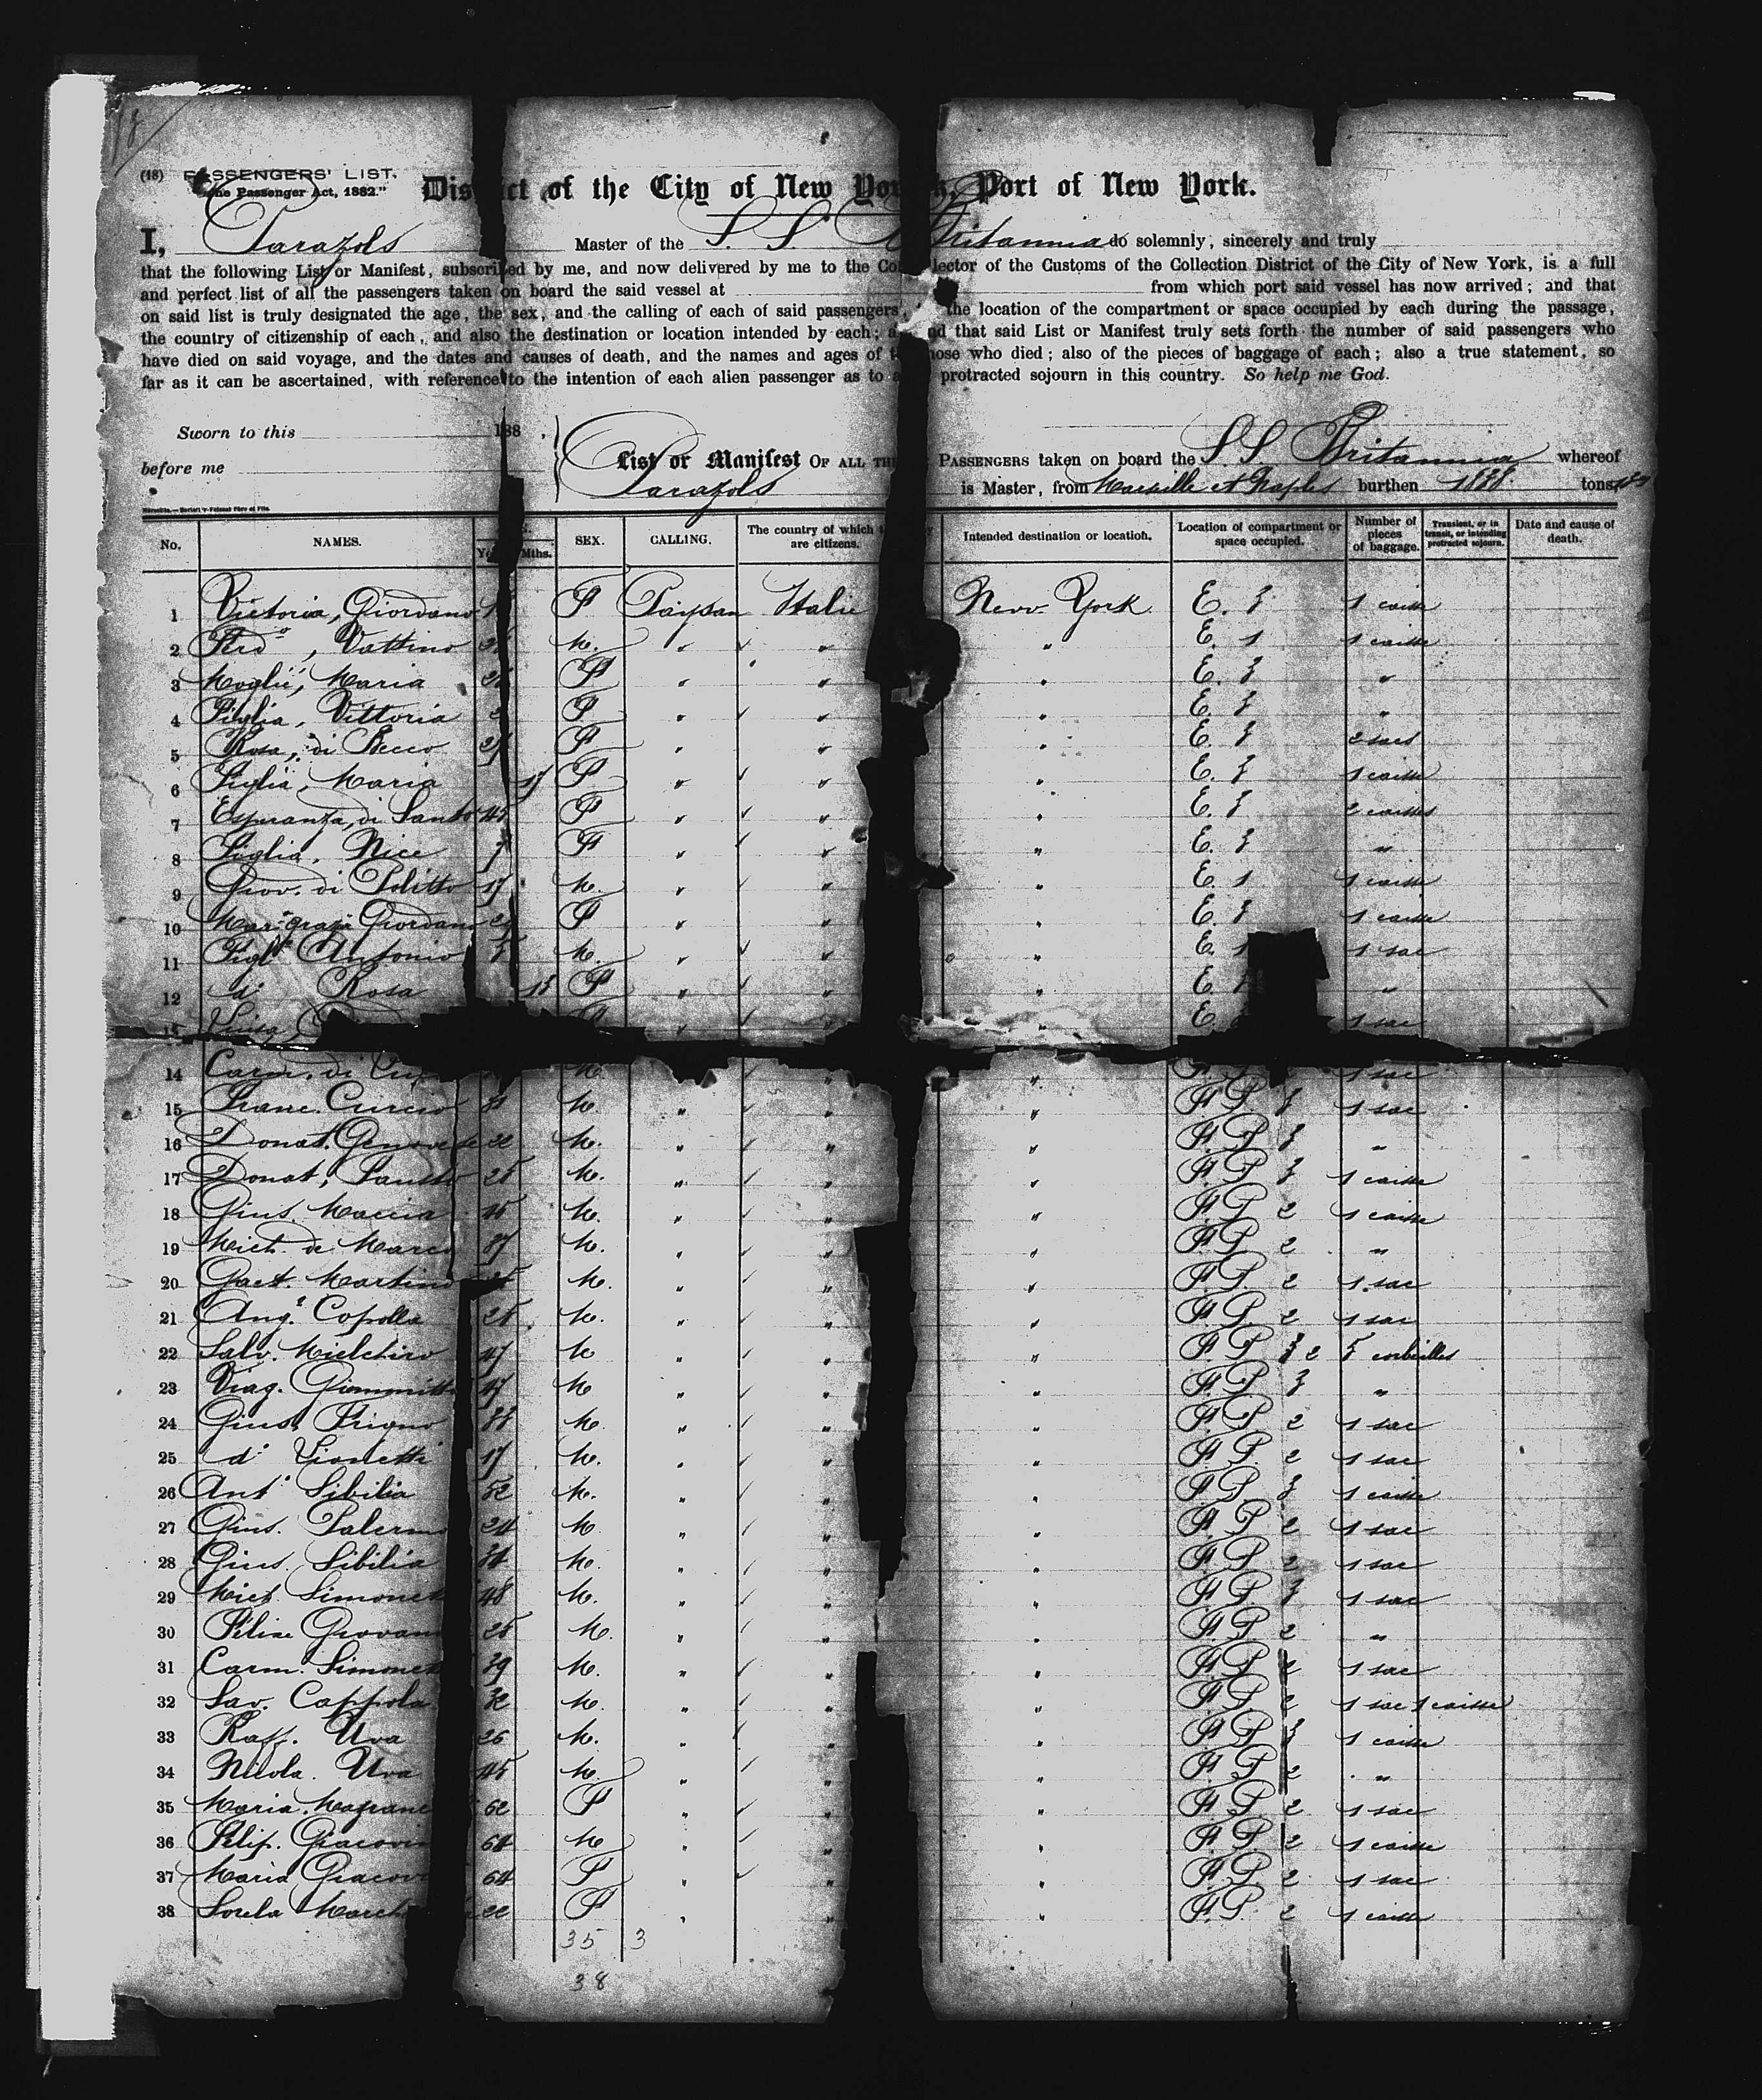 (18) PASSENGERS' LIST.
"The Passenger Act, 1882."
District of the City of New York, Port of New York.
I, Parazols Master of the S. S. Britannia do solemnly, sincerely and truly
that the following List or Manifest, subscribed by me, and now delivered by me to the Collector of the Customs of the Collection District of the City of New York, is a full
and perfect list of all the passengers taken on board the said vessel at from which port said vessel has now arrived; and that
on said list is truly designated the age, the sex, and the calling of each of said passengers, the location of the compartment or space occupied by each during the passage,
the country of citizenship of each, and also the destination or location intended by each; and that said List or Manifest truly sets forth the number of said passengers who
have died on said voyage, and the dates and causes of death, and the names and ages of those who died; also of the pieces of baggage of each; also a true statement, so
far as it can be ascertained, with reference to the intention of each alien passenger as to a protracted sojourn in this country. So help me God.
Sworn to this 188 .
before me
List or Manifest OF ALL THE PASSENGERS taken on board the S S Britannia whereof
Parazols is Master, from Marseille et Naples burthen 1838 tons.
No. NAMES. Mths. SEX. CALLING. The country of which are citizens. Intended destination or location. Location of compartment or space occupied. Number of pieces of baggage. Transient, or in transit, or intending protracted sojourn. Date and cause of death.
1 Victoria, Giordano F Paysan Italie New-York E. 3 1 caisse
2 Ferdo, Vattino M. " " " E. 1 1 caisse
3 Moglié, Maria F " " " E. 3 "
4 Figlia, Vittoria F " " " E. 3 "
5 Rosa, di Becco 27 F " " " E. 3 2 sacs
6 Figlia, Maria 17 F " " " E. 3 1 caisse
7 Esperanza, di Santo 45 F " " " E. 3 2 caisses
8 Figlia, Nice 7 F " " " E. 3 "
9 Giov. di Politto 17 M. " " " E. 1 1 caisse
10 Mar. grazia Giordano F " " " E. 3 1 caisse
11 Figlo Antonio M. " " " E. 1 1 sac
12 do Rosa 15 F " " " E. "
13 Luisa " " " E. 1 sac
14 Carm. di M. " " " F. P. 1 sac
15 Franc. Curcio 31 M. " " " F. P. 3 1 sac
16 Donat. Genovese 22 M. " " " F. P. 3 "
17 Donat. 25 M. " " " F. P. 3 1 caisse
18 Gius. Maccia 45 M. " " " F. P. 2 1 caisse
19 Mich. de Marco 37 M. " " " F. P. 2 "
20 Gaet. Martino M. " " " F. P. 2 1 sac
21 Ango Copolla 25 M. " " " F. P. 2 1 sac
22 Salv. Milchiro 47 M " " " F. P. 3 2 5 corbeilles
23 Viag. 47 M " " " F. P. 3 "
24 Gius. Frigno 33 M. " " " F. P. 2 1 sac
25 do Lionetti 17 M. " " " F. P. 2 1 sac
26 Anto Sibilia 52 M. " " " F. P. 3 1 caisse
27 Gius. Palermo 24 M " " " F. P. 2 1 sac
28 Gius. Sibilia 34 M. " " " F. P. 2 1 sac
29 Mich. Simonet 48 M. " " " F. P. 3 1 sac
30 Felice Giovan 25 M. " " " F. P. 2 "
31 Carm. Simonet 39 M. " " " F. P. 2 1 sac
32 Sav. Cappola 32 M. " " " F. P. 2 1 sac 1 caisse
33 Raff. Uva 26 M. " " " F. P. 3 1 caisse
34 Nicola. Uva 45 M. " " " F. P. 2 "
35 Maria. 62 F " " " F. P. 2 1 sac
36 Filip. Giacovin 64 M. " " " F. P. 2 1 caisse
37 Maria Giacov 64 F " " " F. P. 2 1 sac
38 March 22 F " " " F. P. 2 1 caisse
35 3
38